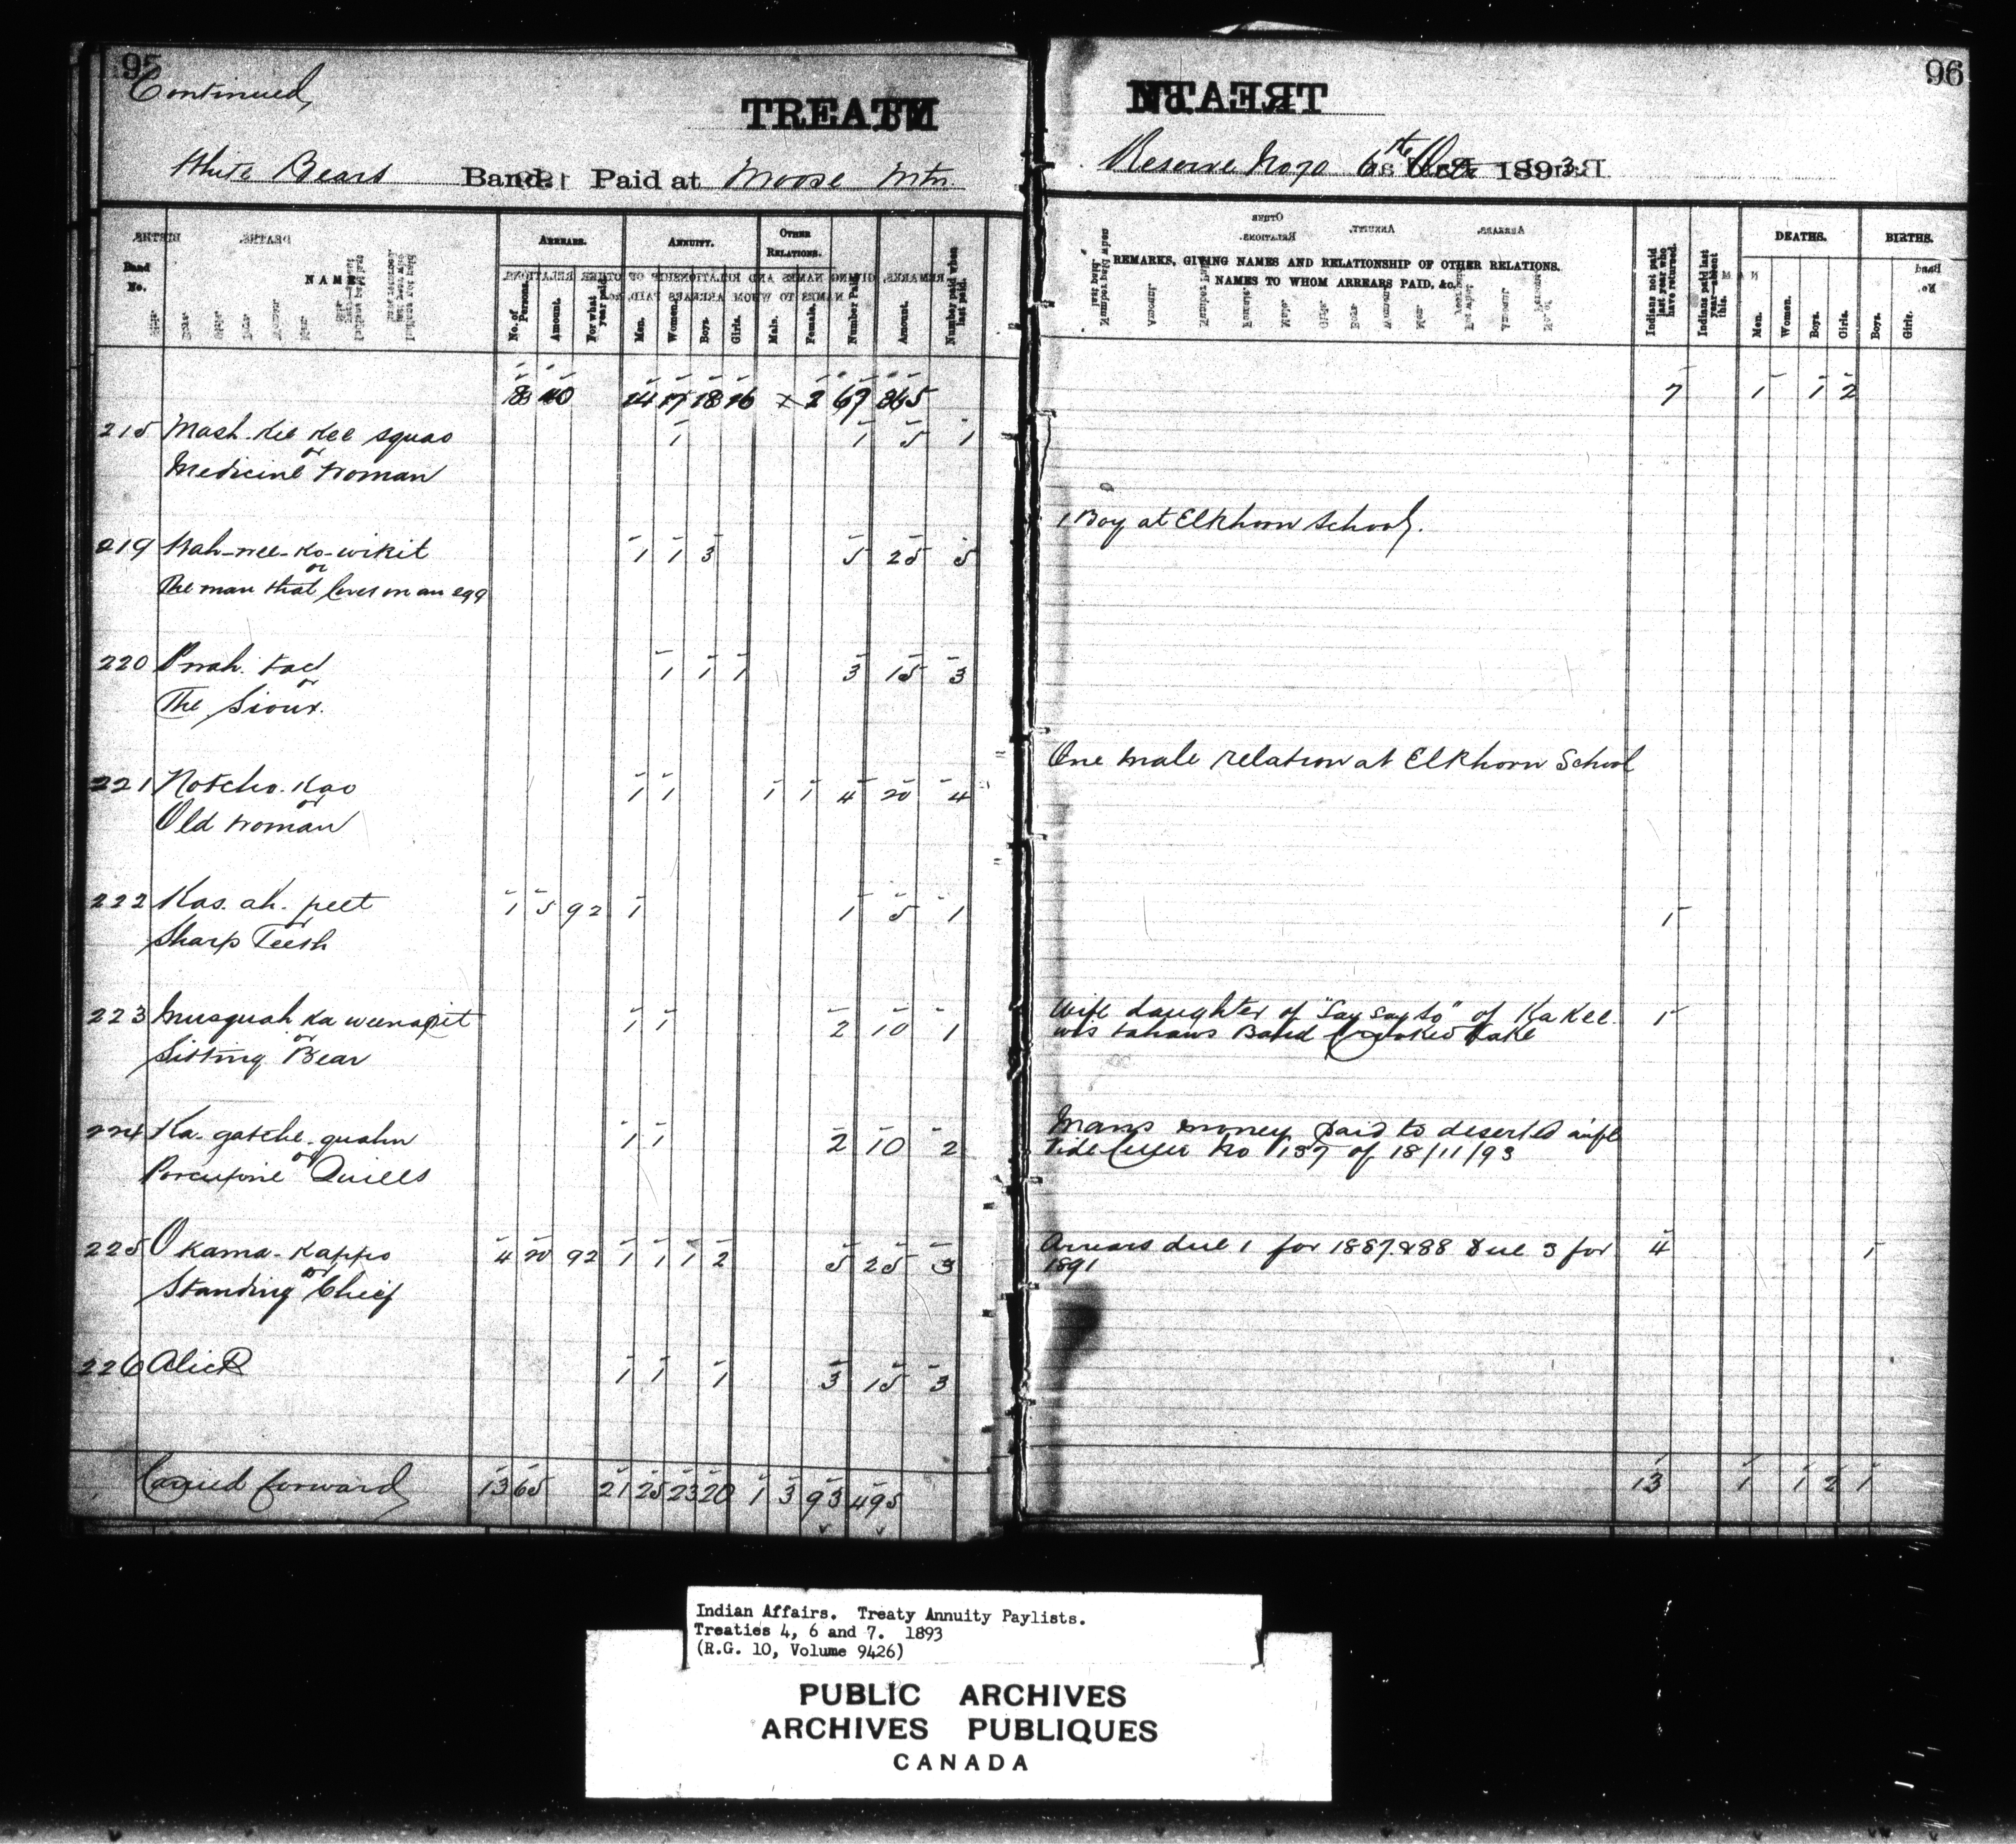 95
Continued
TREATY
White Bears Band. Paid at Moose Mtn.
Band No.
NAME
ARREARS.
No. of Persons.
Amount.
For what year paid.
ANNUITY.
Men.
Women.
Boys.
Girls.
OTHER RELATIONS.
Male.
Female.
Number Paid.
Amount.
Number paid when last paid.
8 40 14 17 18 16 x 2 67 365
215 Mash. Kee Kee squao 1 1 5 1
or
Medicine Woman
219 Wah-wee-Ko-wikit 1 1 3 5 25 5
or
The man that lives on an egg
220 Pwah. tac 1 1 1 3 15 3
or
The Sioux.
221 Notcho. Kao 1 1 1 1 4 20 4
or
Old Woman
222 Kas. ah. peet 1 5 92 1 1 5 1
or
Sharp Teeth
223 Musquah Ka weenapit 1 1 2 10 1
or
Sitting Bear
224 Ka-gatche-quahn 1 1 2 10 2
or
Porcupine Quills
225 Okama-Kappo 4 20 92 1 1 1 2 5 25 3
or
Standing Chief
226 Alick 1 1 1 3 15 3
Carried forward 13 65 21 25 23 20 1 3 93 495
96
TREATY
Reserve No 70 6th Oct 1893
REMARKS, GIVING NAMES AND RELATIONSHIP OF OTHER RELATIONS.
NAMES TO WHOM ARREARS PAID, &c.
Indians not paid last year who have returned.
Indians paid last year—absent this.
DEATHS.
Men.
Women.
Boys.
Girls.
BIRTHS.
Boys.
Girls.
7 1 1 2
1 Boy at Elkhorn School.
One male relation at Elkhorn School
1
Wife daughter of "Say Say So" of Ka Kee 1
wis tahaws Band Crooked Lake
Mans money paid to deserted wife
Vide Letter No 137 of 18/11/93
Arrears due 1 for 1887 & 88 due 3 for 4 1
1891
13 1 1 2 1
Indian Affairs. Treaty Annuity Paylists.
Treaties 4, 6 and 7. 1893
(R.G. 10, Volume 9426)
PUBLIC ARCHIVES
ARCHIVES PUBLIQUES
CANADA